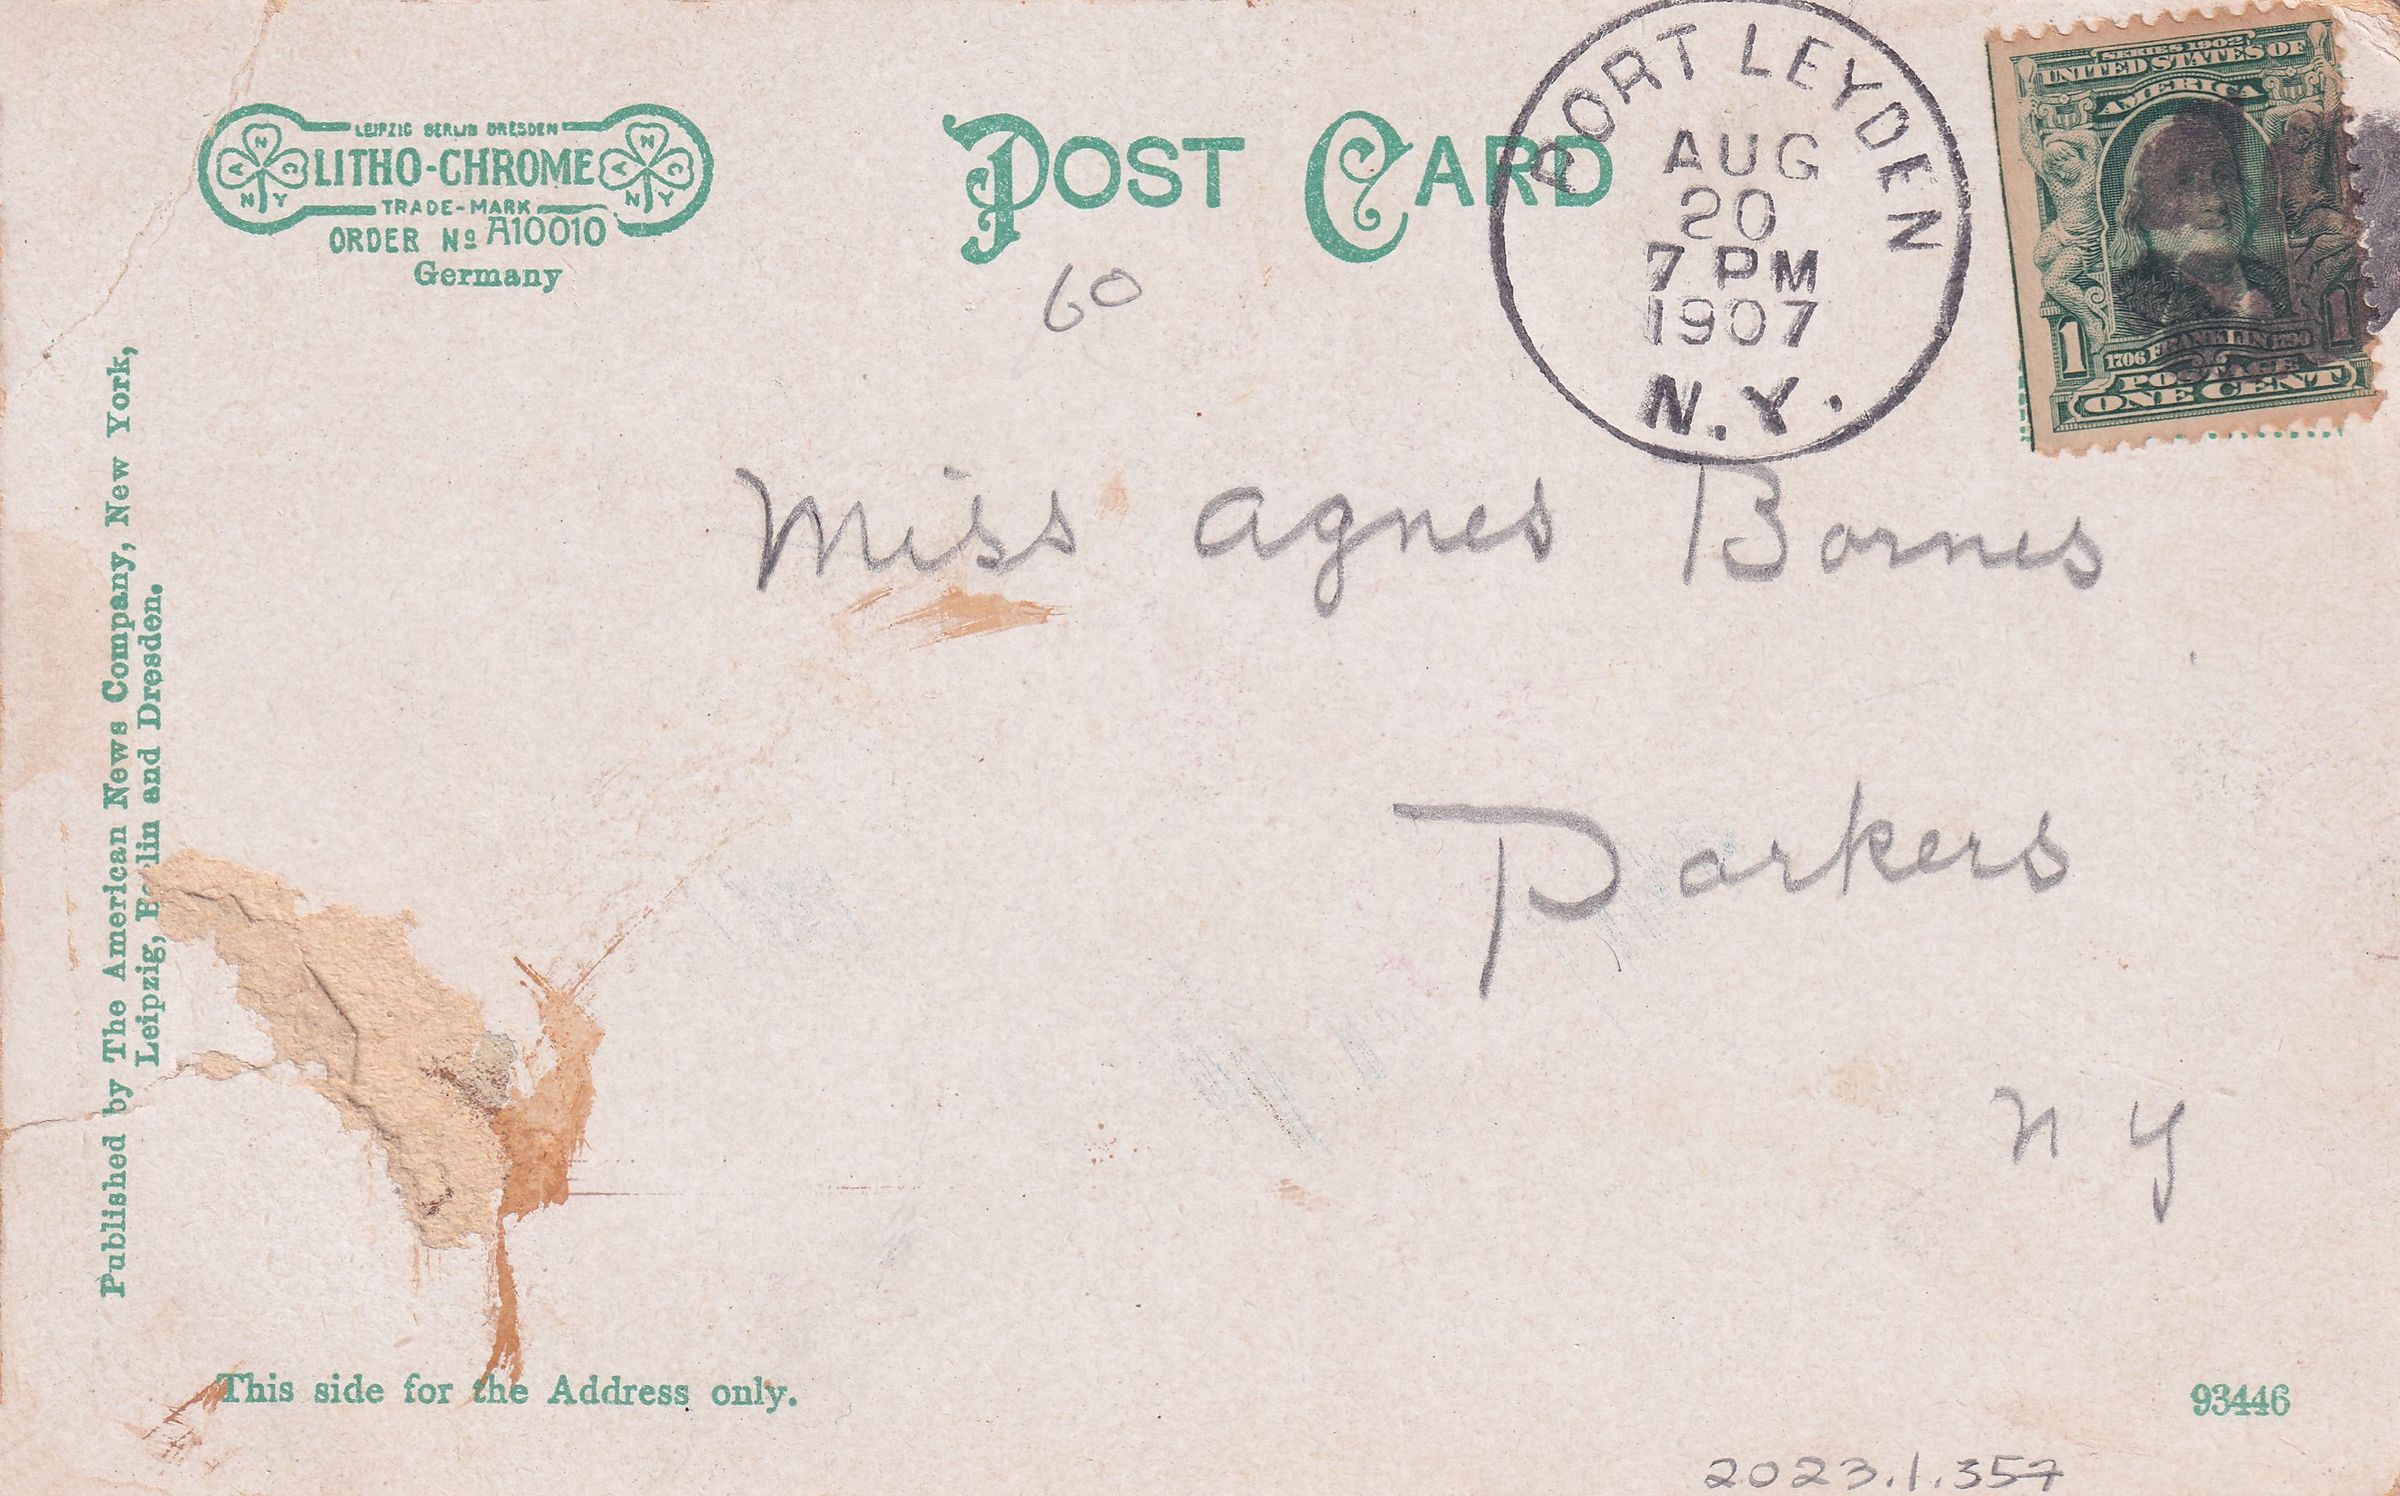 LEIPZIG BERLIN DRESDEN
LITHO-CHROME
TRADE-MARK
ORDER Nº A10010
Germany
POST CARD
60
PORT LEYDEN
AUG
20
7 PM
1907
N.Y.
SERIES 1902
UNITED STATES OF
AMERICA
1 1
1706 FRANKLIN 1790
POSTAGE
ONE CENT
Miss Agnes Barnes
Parkers
N Y
Published by The American News Company, New York,
Leipzig, Berlin and Dresden.
This side for the Address only.
93446
2023.1.357